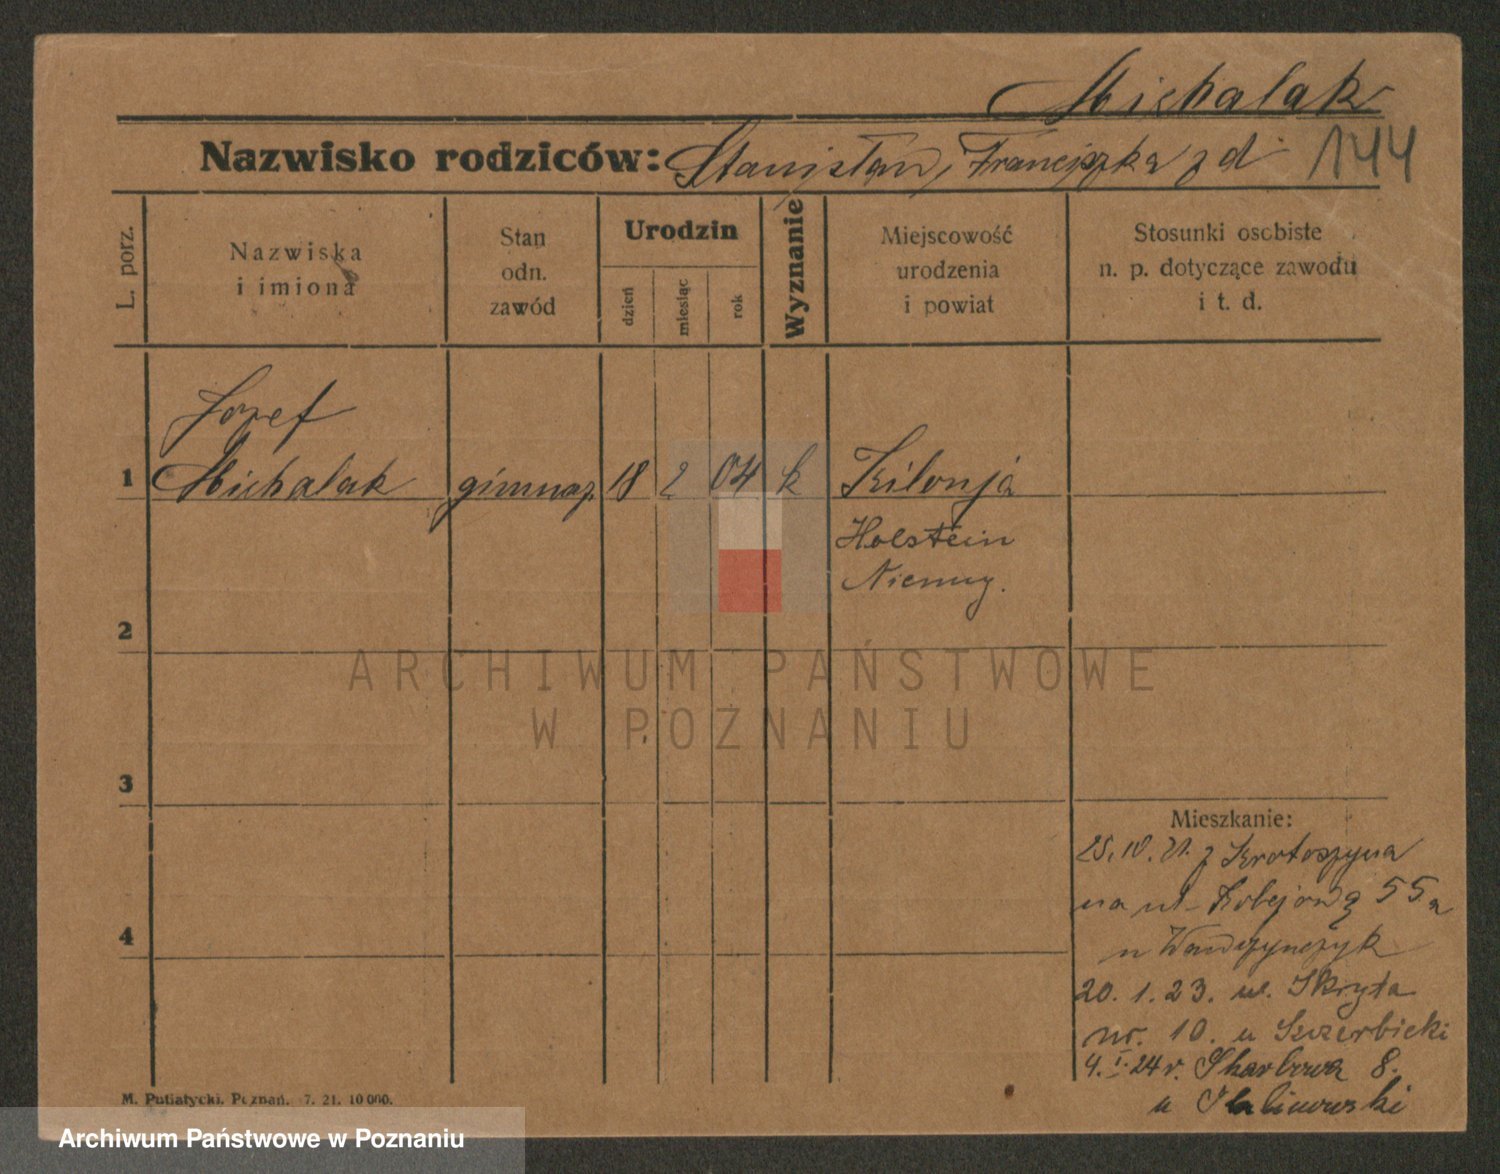 Michalak
Nazwisko rodziców: Stanisław, Franciszka z d. 144
L. porz.
Nazwiska
i imiona
Stan
odn.
zawód
Urodzin
dzień
miesiąc
rok
Wyznanie
Miejscowość
urodzenia
i powiat
Stosunki osobiste
n. p. dotyczące zawodu
i t. d.
Józef
1 Michalak gimnaz. 18 2 04 k Kilonja
Holstein
Niemcy.
2
ARCHIWUM PAŃSTWOWE
W POZNANIU
3
Mieszkanie:
25.10.21. z Krotoszyna
na ul. Kolejową 55a
4
u Wawrzynczyk
20.1.23. ul. Skryta
nr. 10. u Szczerbicki
4.I.24 r. Skarbowa 8.
u Malinowski
M. Putiatycki, Poznań. 7. 21. 10 000.
Archiwum Państwowe w Poznaniu